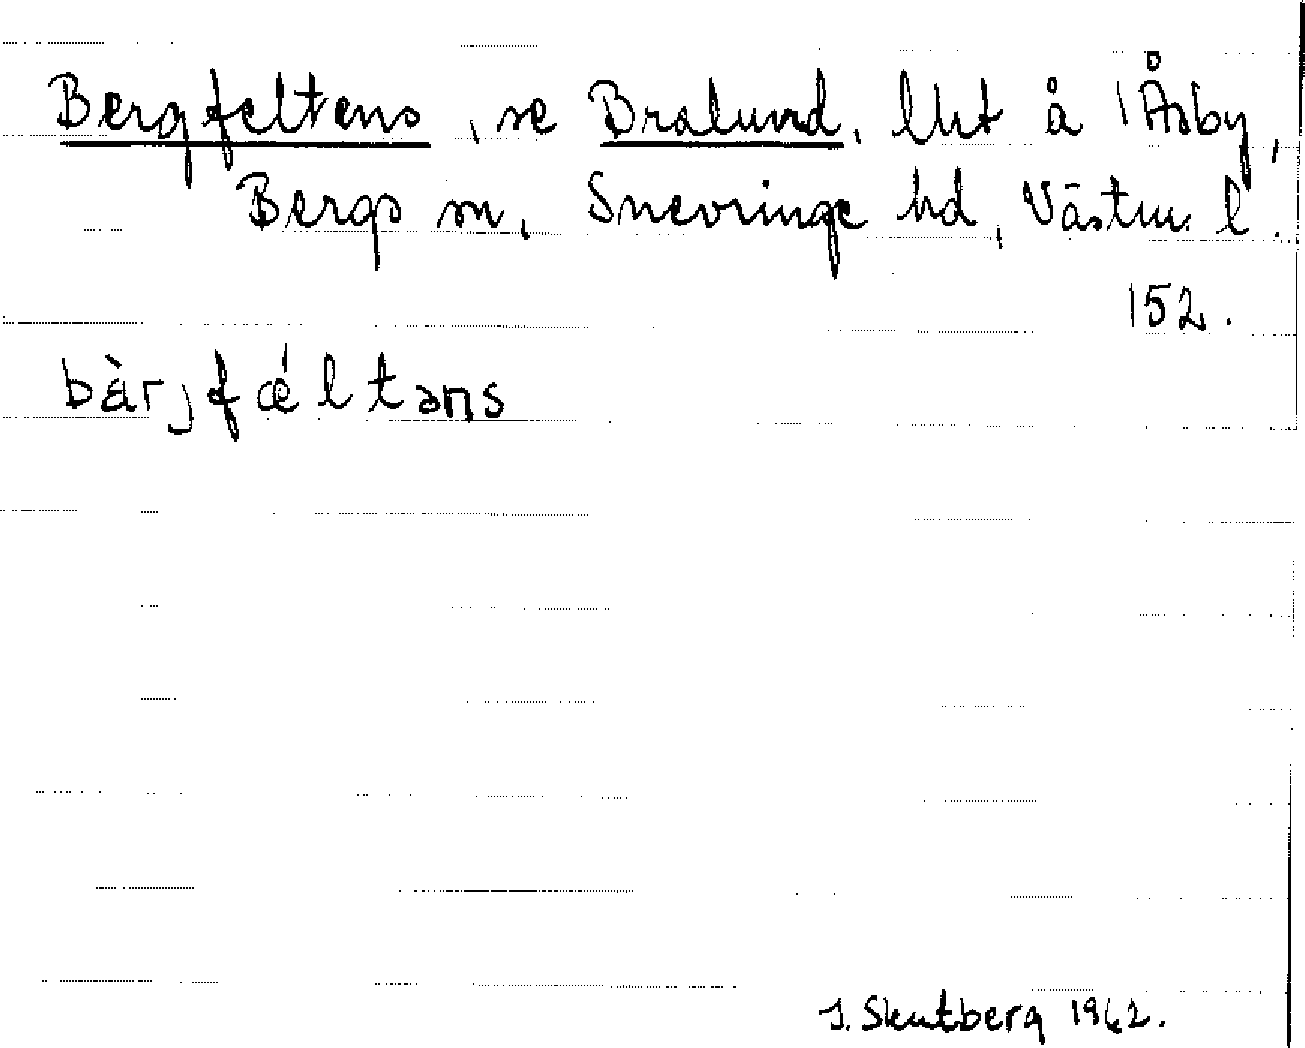 Bergfeltens, se Bralund, lht å 1 Åsby,
Bergs sn, Snevringe hd, Västm. l.
152.
bàrjfǽltəns
J. Skutberg 1962.